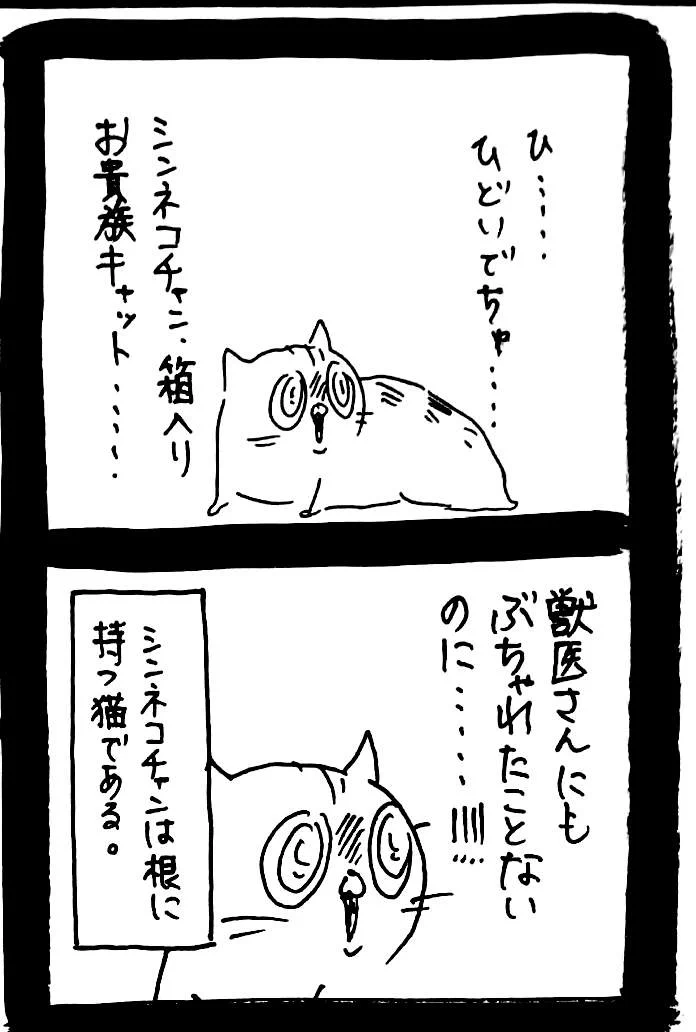 ひ……
ひどいでちゅ……
シンネコチャン、箱入り
お貴族キャット……
獣医さんにも
ぶちゃれたことない
のに……!!!!
シンネコチャンは根に
持つ猫である。